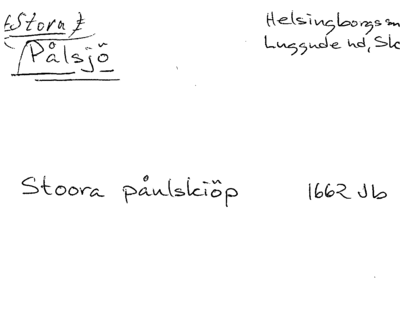 Stora
Pålsjö
Helsingborgs
Luggude hd, Sk
Stoora påulskiöp 1662 Jb